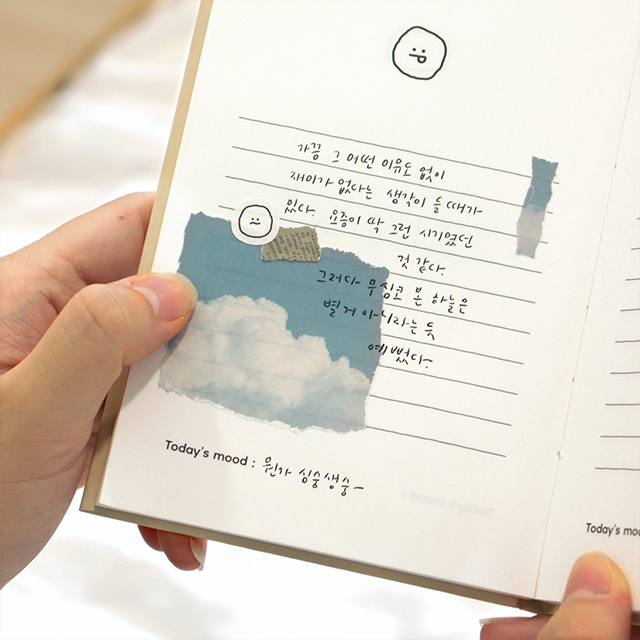 가끔 그 어떤 이유도 없이
재미가 없다는 생각이 들 때가
있다. 요즘이 딱 그런 시기였던
것 같다.
그러다 무심코 본 하늘은
별거 아니라는 듯
예뻤다.
Today's mood : 뭔가 싱숭생숭~
Today's moo